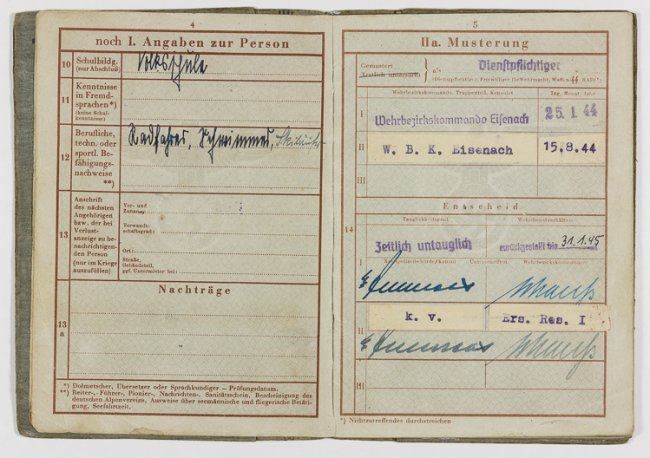 4
noch I. Angaben zur Person
10 Schulbildg. (nur Abschluß)
Volksschule
11 Kenntnisse in Fremdsprachen*) (keine Schulkenntnisse)
12 Berufliche, techn. oder sportl. Befähigungsnachweise **)
Radfahrer, Schwimmer,
13 Anschrift des nächsten Angehörigen bzw. der bei Verlustanzeige zu benachrichtigenden Person (nur im Kriege auszufüllen)
Vor- und Zuname:
Verwandtschaftsgrad:
Ort:
Straße, Gebäudeteil, ggf. Untermieter bei:
Nachträge
13 a
*) Dolmetscher, Übersetzer oder Sprachkundiger – Prüfungsdatum.
**) Reiter-, Führer-, Pionier-, Nachrichten-, Sanitätsschein, Bescheinigung des
deutschen Alpenvereins, Ausweise über seemännische und fliegerische Betätigung, Seefahrtzeit.
5
IIa. Musterung
Gemustert
als
Dienstpflichtiger
Tag Monat Jahr
I
Wehrbezirkskommando Eisenach
25. 1. 44
II
W. B. K. Eisenach
15.8.44
III
Entscheid
14
Tauglichkeitsgrad
Wehrdienstverhältnis
I
Zeitlich untauglich
zurückgestellt bis 31.1.45
k. v.
Ers. Res. I
II
III
*) Nichtzutreffendes durchstreichen